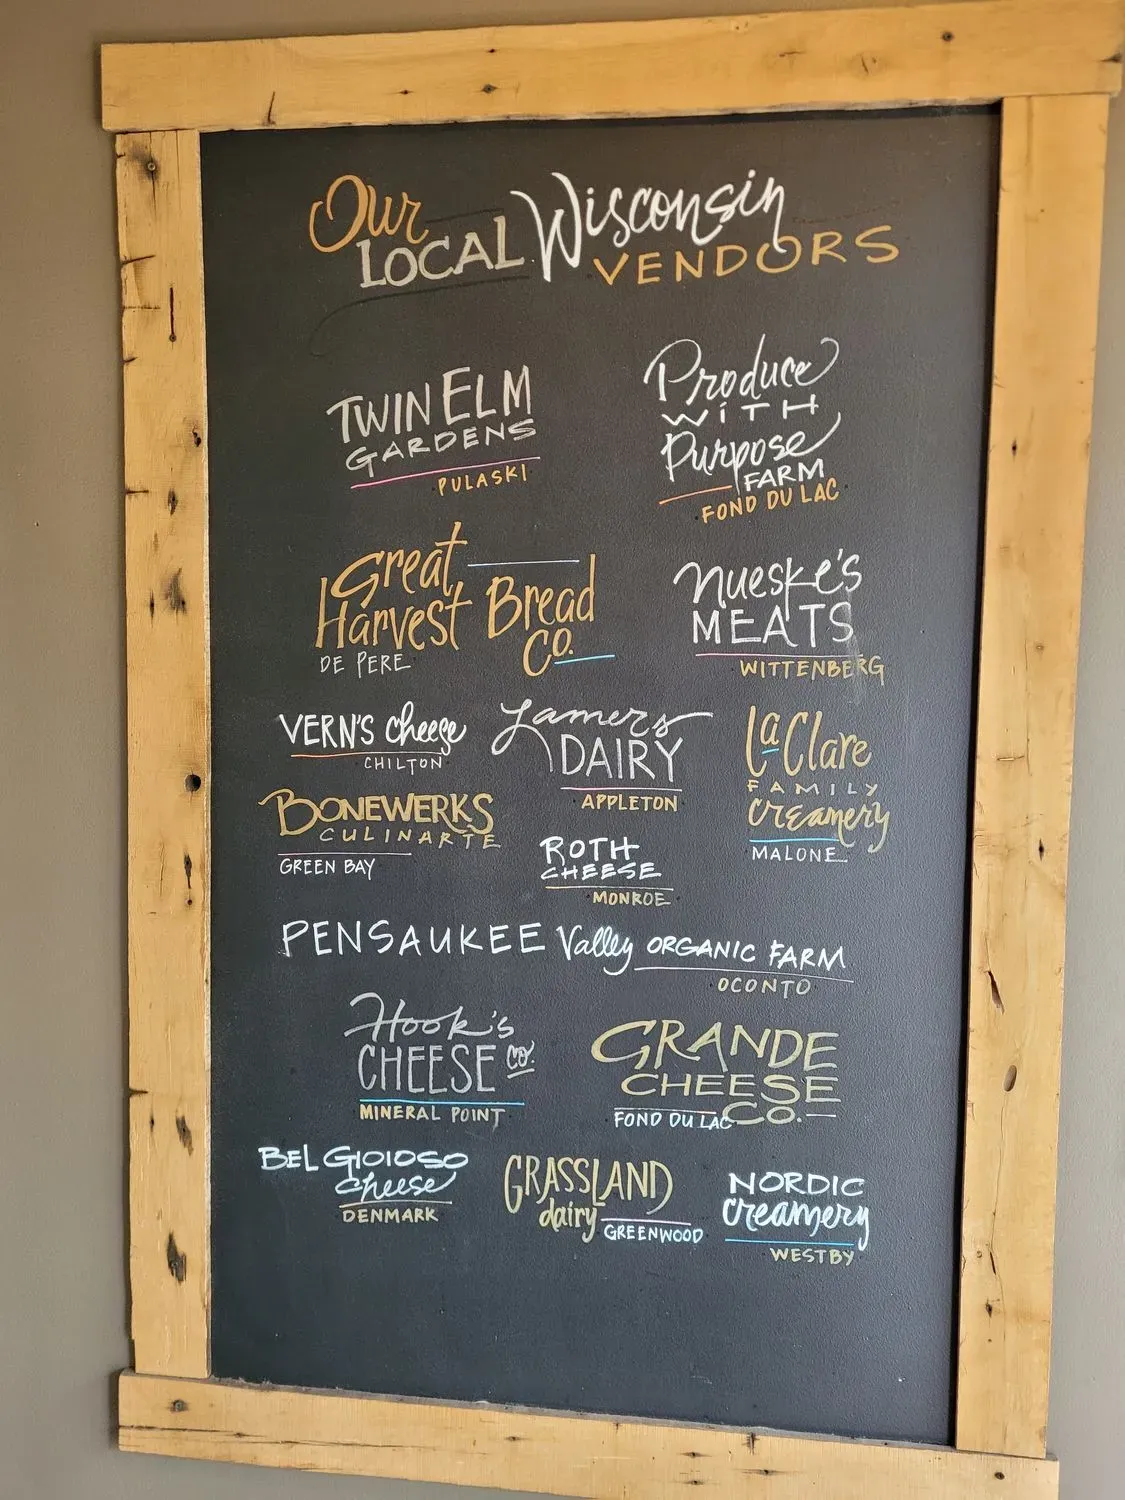 Our
LOCAL Wisconsin
VENDORS
TWIN ELM
GARDENS
PULASKI
Produce
WiTH
Purpose
FARM
FOND DU LAC
Great
Harvest Bread
Co.
DE PERE
Nueske's
MEATS
WITTENBERG
VERN'S cheese
CHILTON
Lamers
DAIRY
APPLETON
LaClare
FAMILY
creamery
MALONE
BONEWERKS
CULINARTE
GREEN BAY
ROTH
CHEESE
MONROE
PENSAUKEE Valley ORGANIC FARM
OCONTO
Hook's
CHEESE co.
MINERAL POINT
GRANDE
CHEESE
CO.
FOND DU LAC
BEL GIOIOSO
cheese
DENMARK
GRASSLAND
dairy
GREENWOOD
NORDIC
creamery
WESTBY